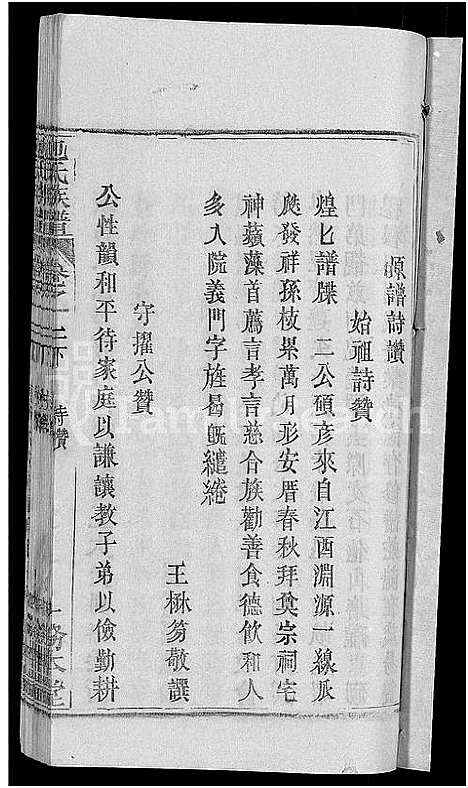 源譜詩讚
始祖詩贊
煌匕譜牒二公碩彥來自江西淵源一線瓜
瓞發祥孫枝果萬月形安厝春秋拜奠宗祠宅
神蘋藻首薦言孝言慈合族勸善食德飲和人
多入院義門字旌曷旣繾綣
王楙芴敬譔
守擢公贊
公性韻和平待家庭以謙讓教子弟以儉勤耕
池氏族譜 卷之一上下 詩贊